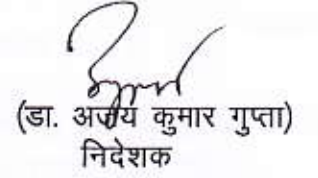 (डा. अजय कुमार गुप्ता)
निदेशक